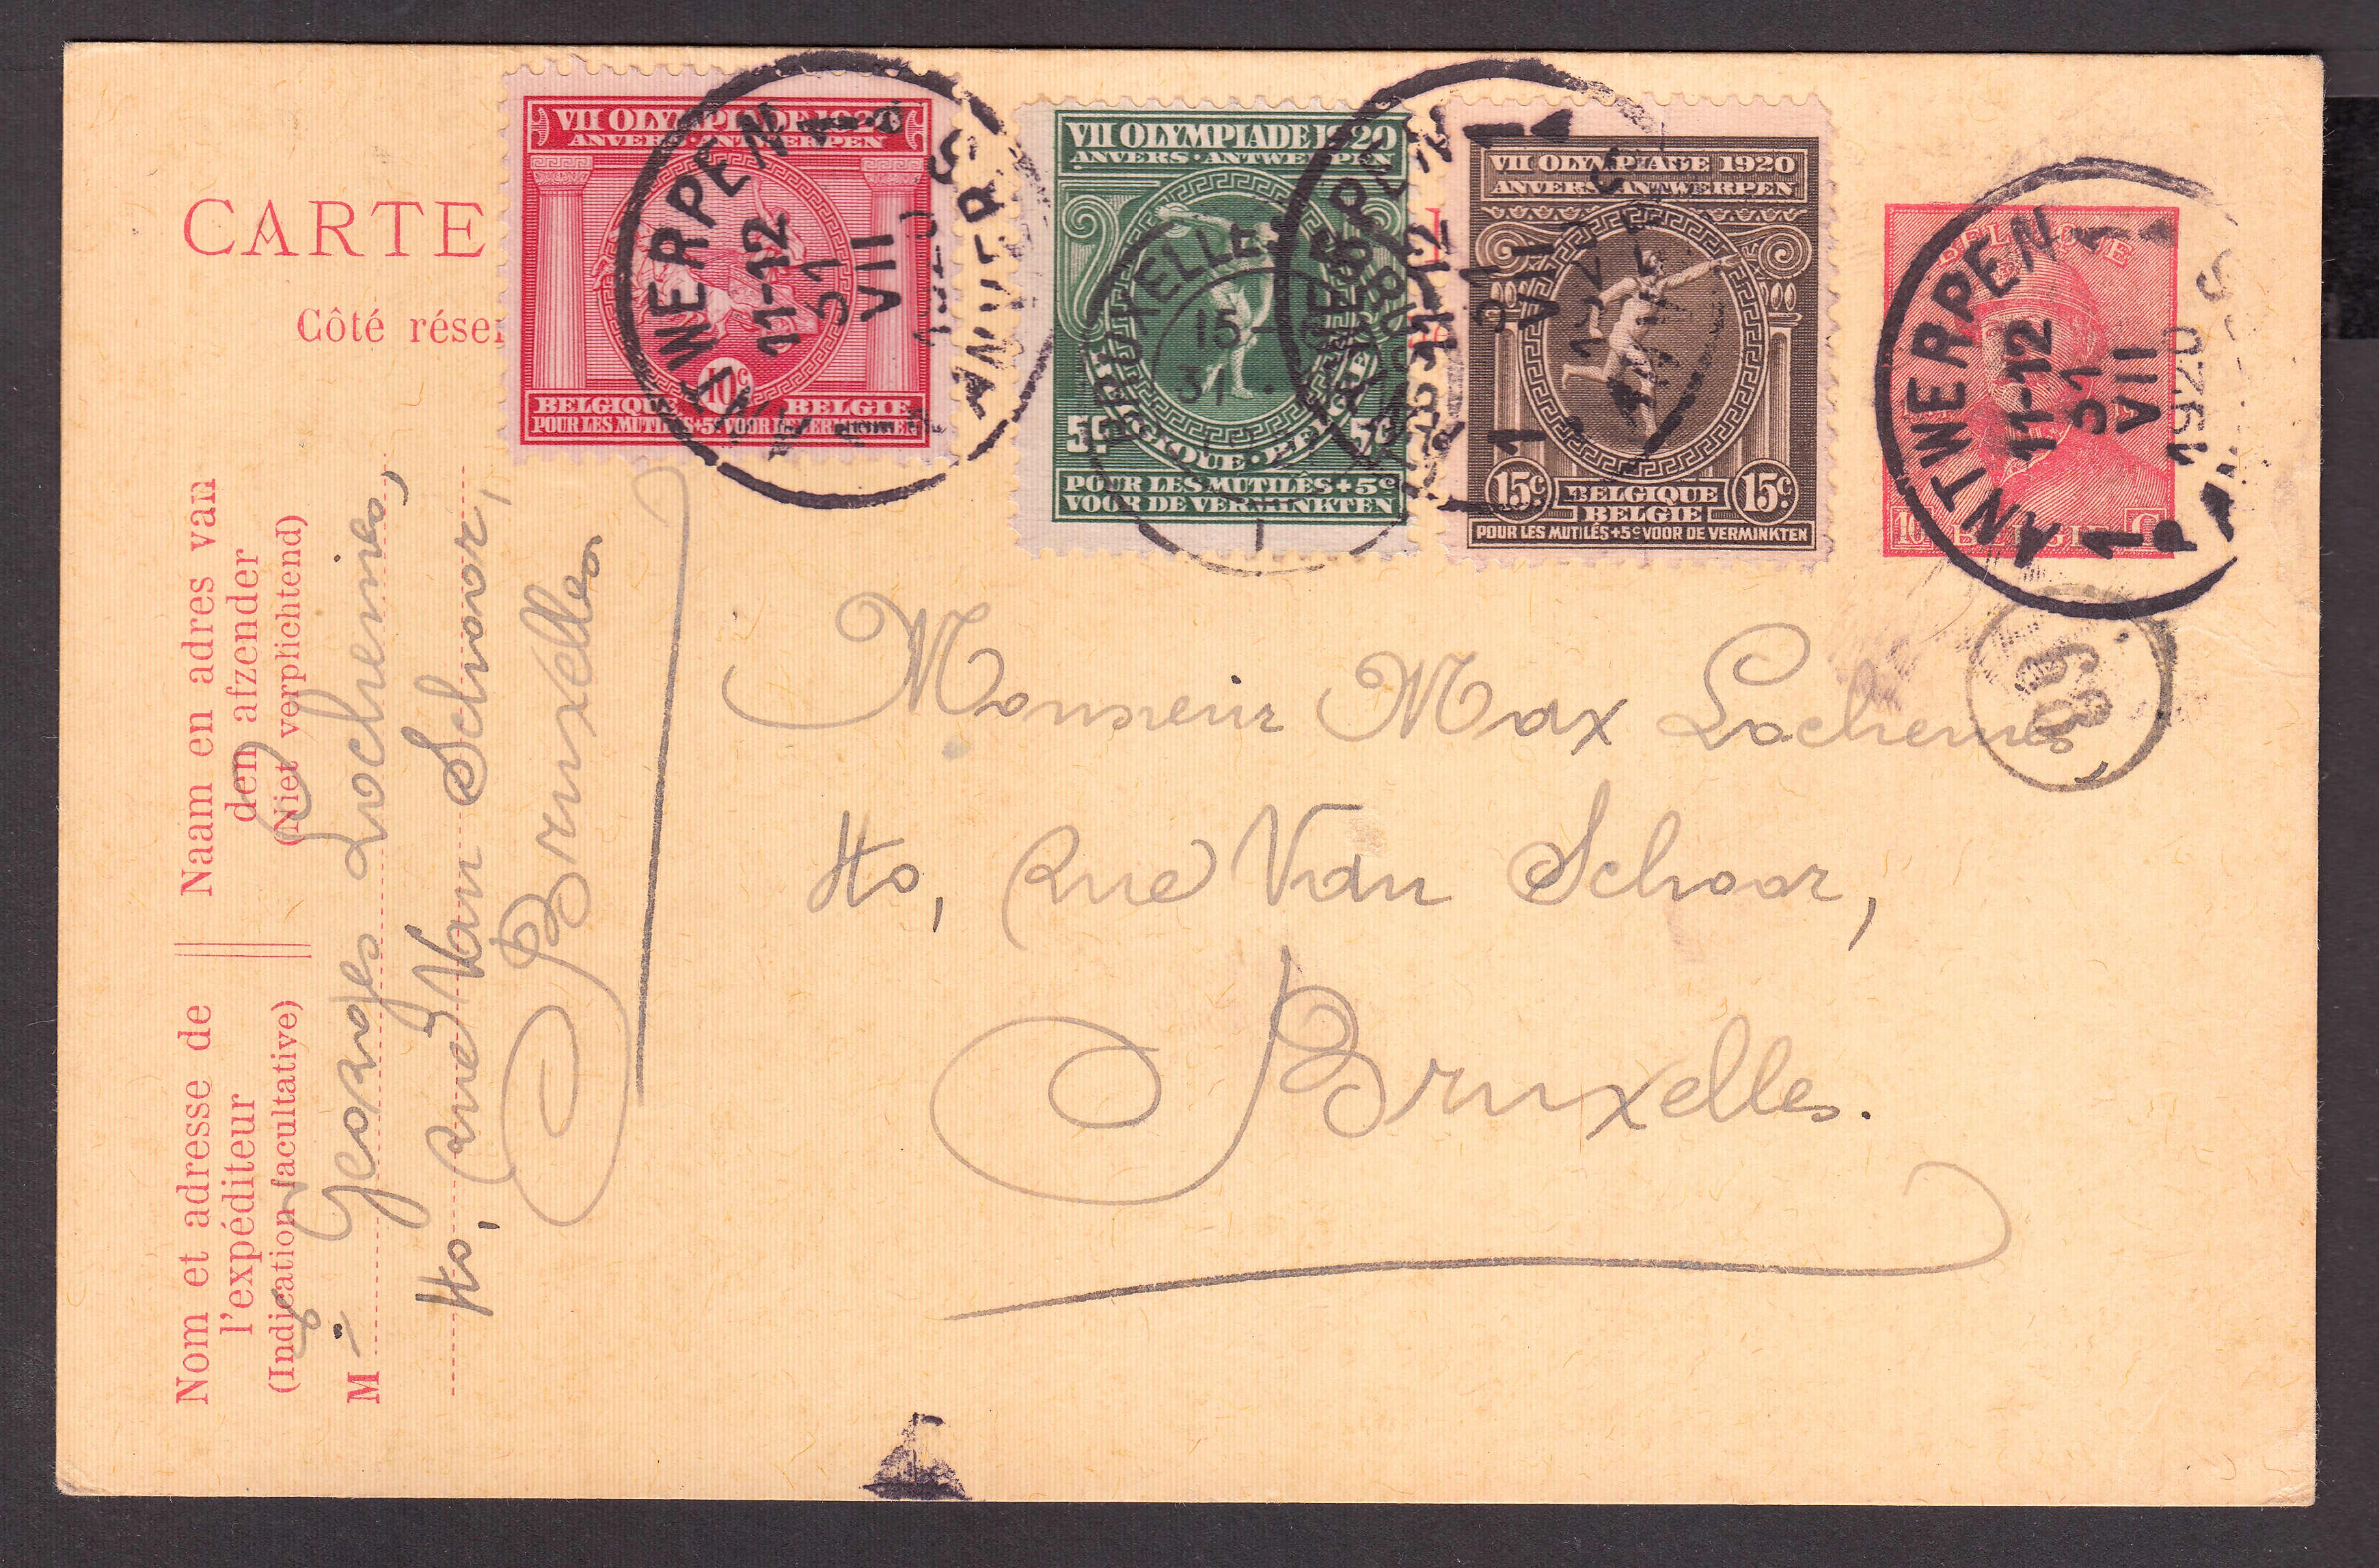 CARTE
Côté réser
VII OLYMPIADE 1920
ANVERS · ANTWERPEN
10c
BELGIQUE BELGIE
POUR LES MUTILÉS+5c VOOR DE VERMINKTEN
VII OLYMPIADE 1920
ANVERS · ANTWERPEN
5c 5c
BELGIQUE · BELGIE
POUR LES MUTILÉS+5c
VOOR DE VERMINKTEN
VII OLYMPIADE 1920
ANVERS ANTWERPEN
15c BELGIQUE 15c
BELGIE
POUR LES MUTILÉS+5c VOOR DE VERMINKTEN
BELGIQUE
10 BELGIE C
ANTWERPEN 1
11-12
31
VII
1920
ANVERS
BRUXELLES
15-
31
ANTWERPEN 1
11-12
31
VII
ANTWERPEN 1
11-12
31
VII
1920
1
68
Naam en adres van
den afzender
(Niet verplichtend)
Nom et adresse de
l'expéditeur
(Indication facultative)
M Georges Lochemes,
40, Rue Van Schoor,
Bruxelles
Monsieur Max Lochemes
40, Rue Van Schoor,
Bruxelles.